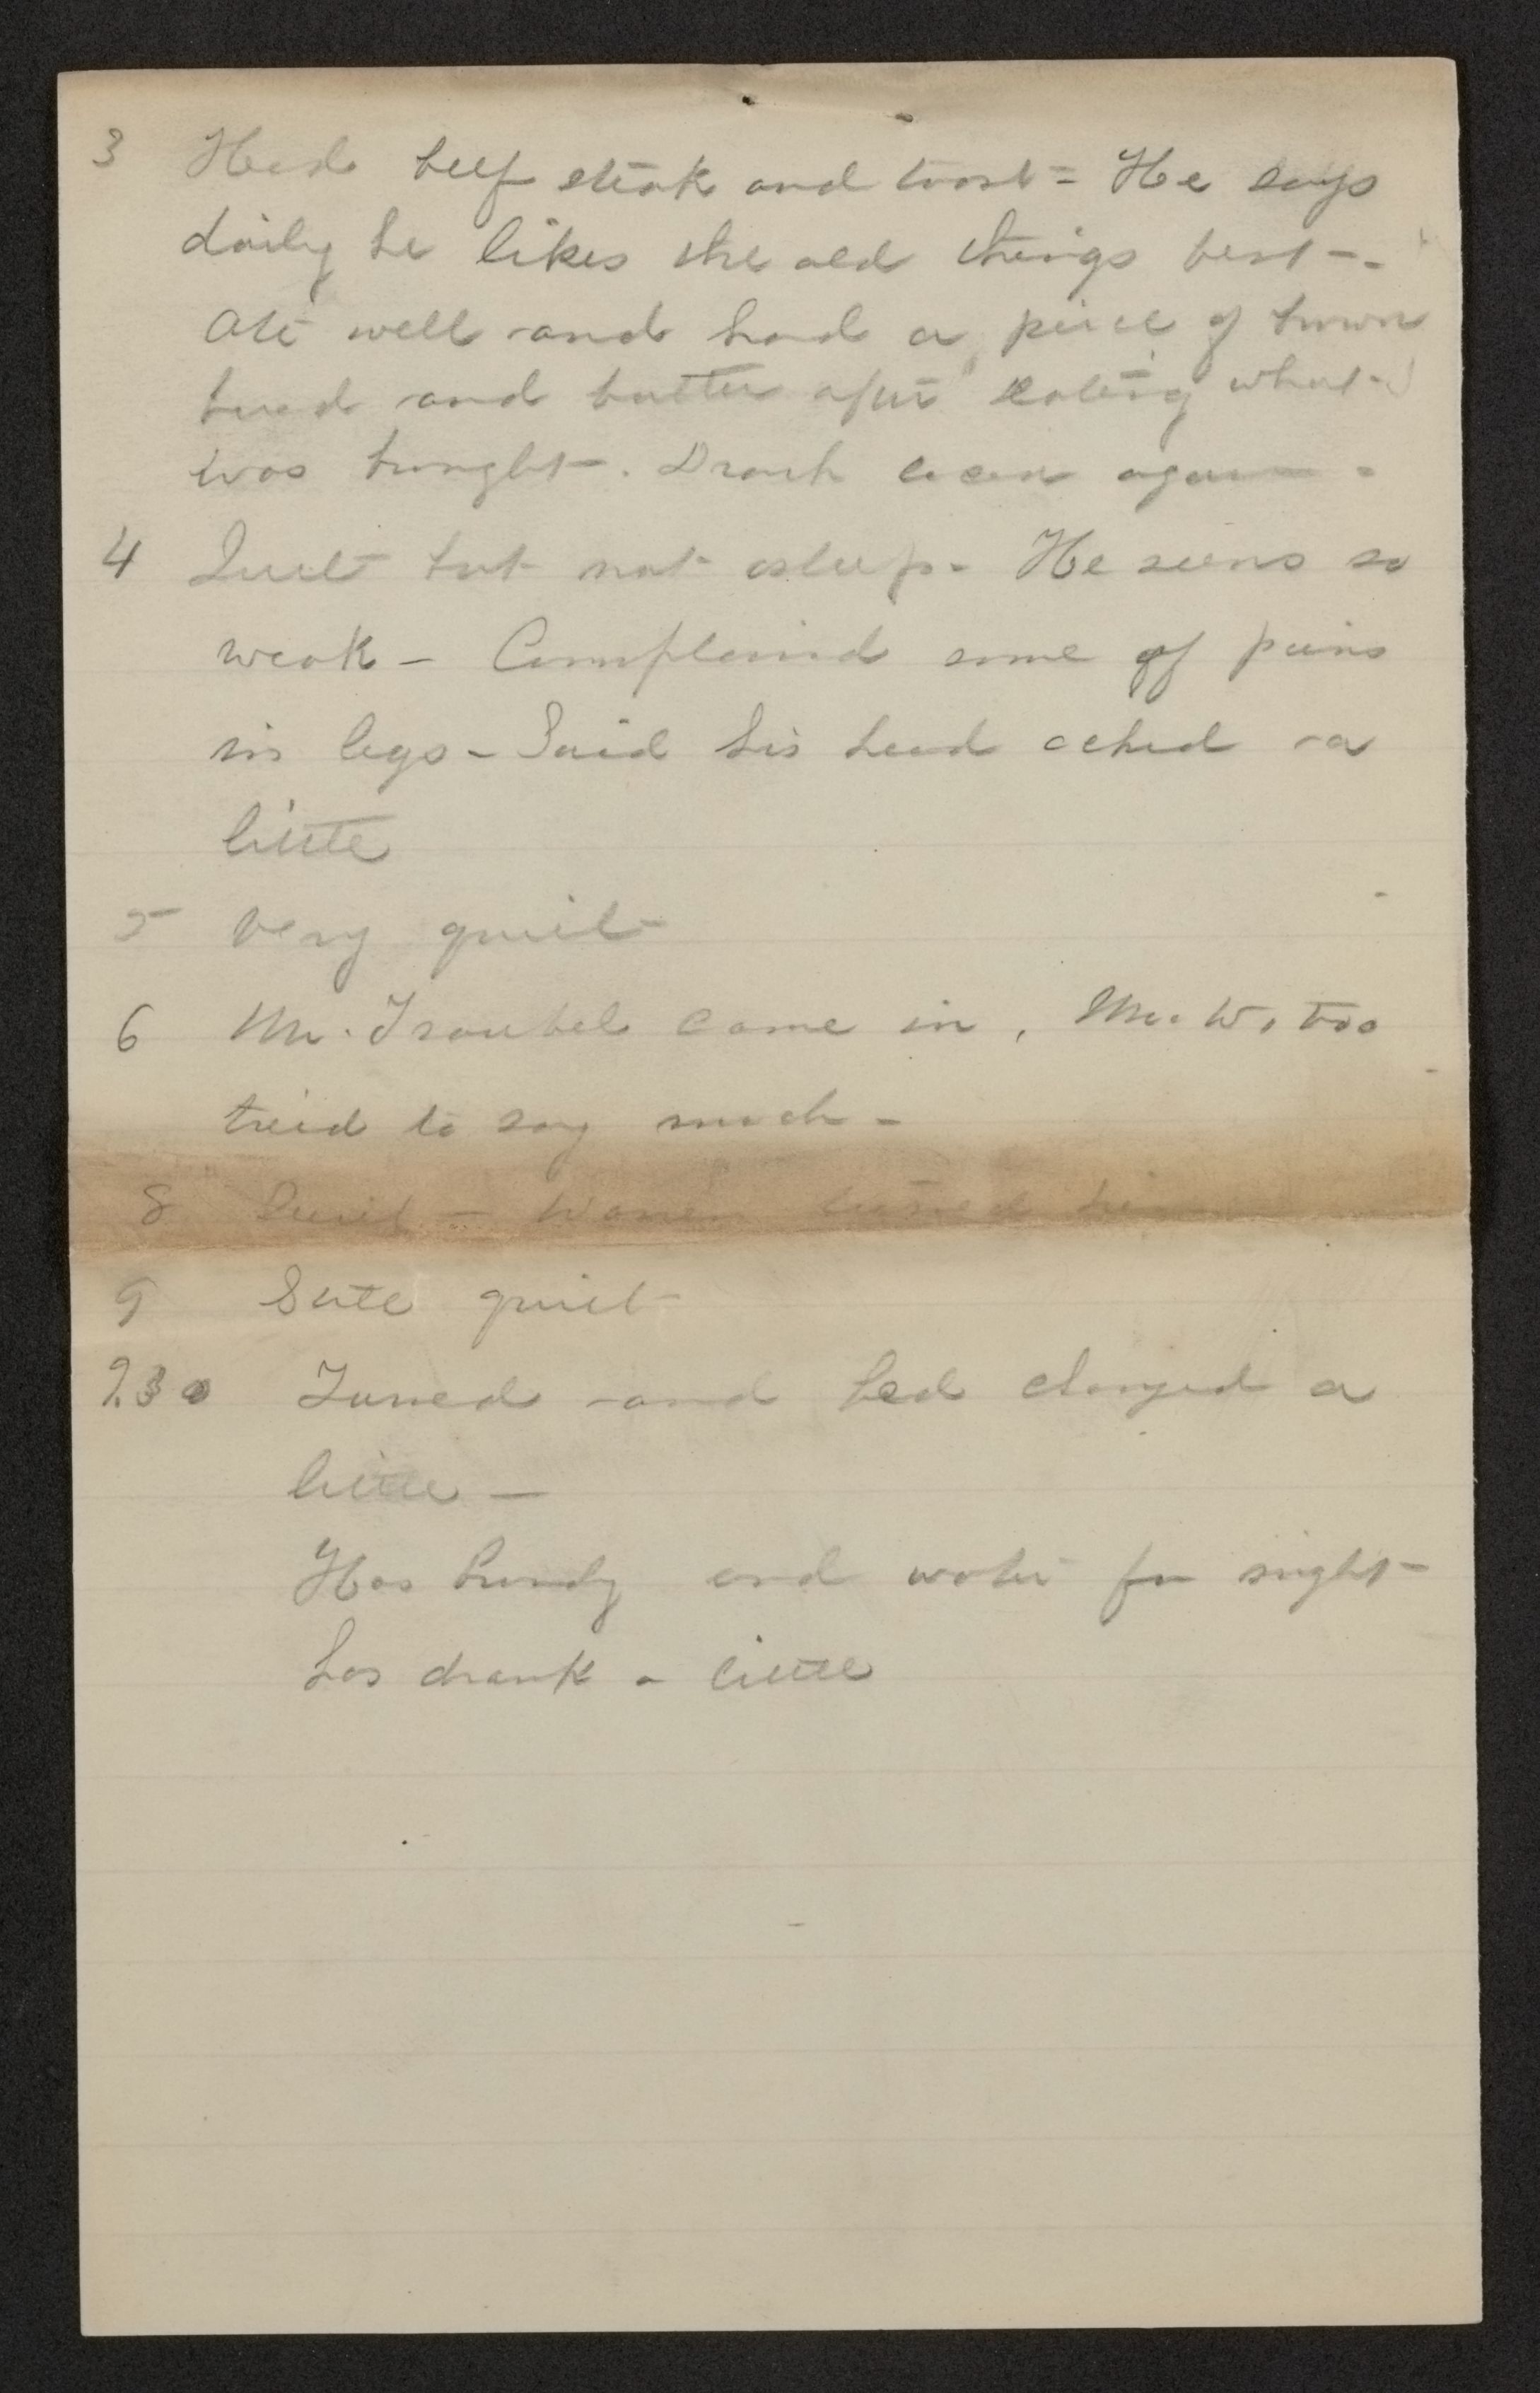 3 Had beef steak and toast = He says
daily he likes the old things best -.
Ate well and had a piece of brown
bread and butter after eating what
was brought. Drank cocoa again -
4 Quiet but not asleep - He seems so
weak - Complained some of pains
in legs - Said his head ached a
little
5 Very quiet
6 Mr. Traubel came in, Mr. W. too
tried to say much -
8 Quiet - Warren turned him
9 Quite quiet
9.30 Turned and bed changed a
little -
Has brandy and water for night
has drank a little